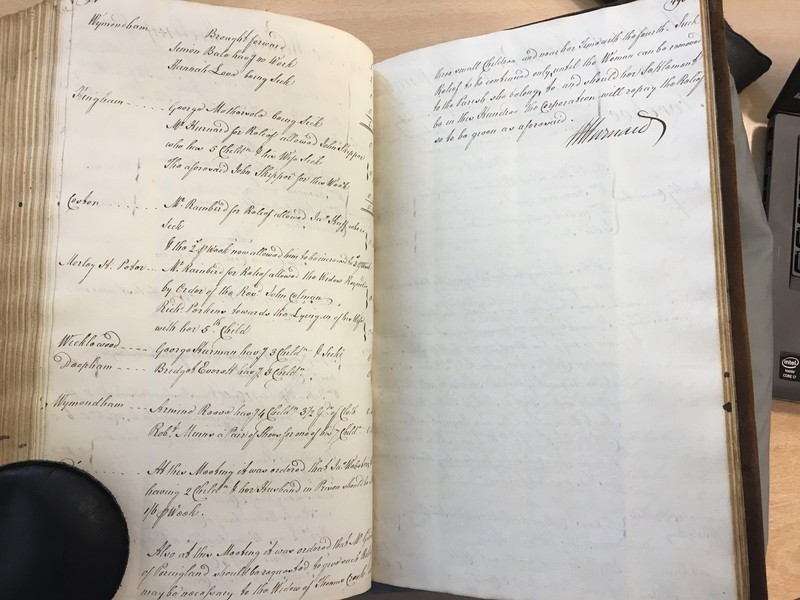 Wymondham
Brought forward
Simon Bale hav.g no Work
Hannah Love being Sick
Hingham George Mothersole being Sick
Mr Hurnard for Relief allowed John Skipper
who has 5 Childn & his Wife Sick
The aforesaid John Skipper for this Week
Coston Mr Rainbird for Relief allowed Jas Huff when
Sick
& the 2s p Week now allowed him to be increased to
Morley St Peter Mr Rainbird for Relief allowed the Widow
by Order of the Revd John Colman
Richd Perkins towards the Lying in of his Wife
with her 5th Child
Wicklewood George Harman hav.g 3 Childn & Sick
Deopham Bridget Everett hav.g 5 Childn
Wymondham Armind Reeve hav.g 4 Childn 3½ Yds of Cloth
Robt Munns a Pair of Shoes for one of his 7 Childn
At this Meeting it was ordered that
having 2 Childn & her Husband in Prison should be
1/6 p Week.
Also at this Meeting it was ordered that Mr
of Poringland should be requested to give such
may be necessary to the Widow of Thomas
three small Children and near her Time with the fourth. Such
Relief to be continued only until the Woman can be removed
to the Parish she belongs to and should her Settlement
be in this Hundred The Corporation will repay the Relief
so to be given as aforesaid.
Hurnard
intel
CORE i7